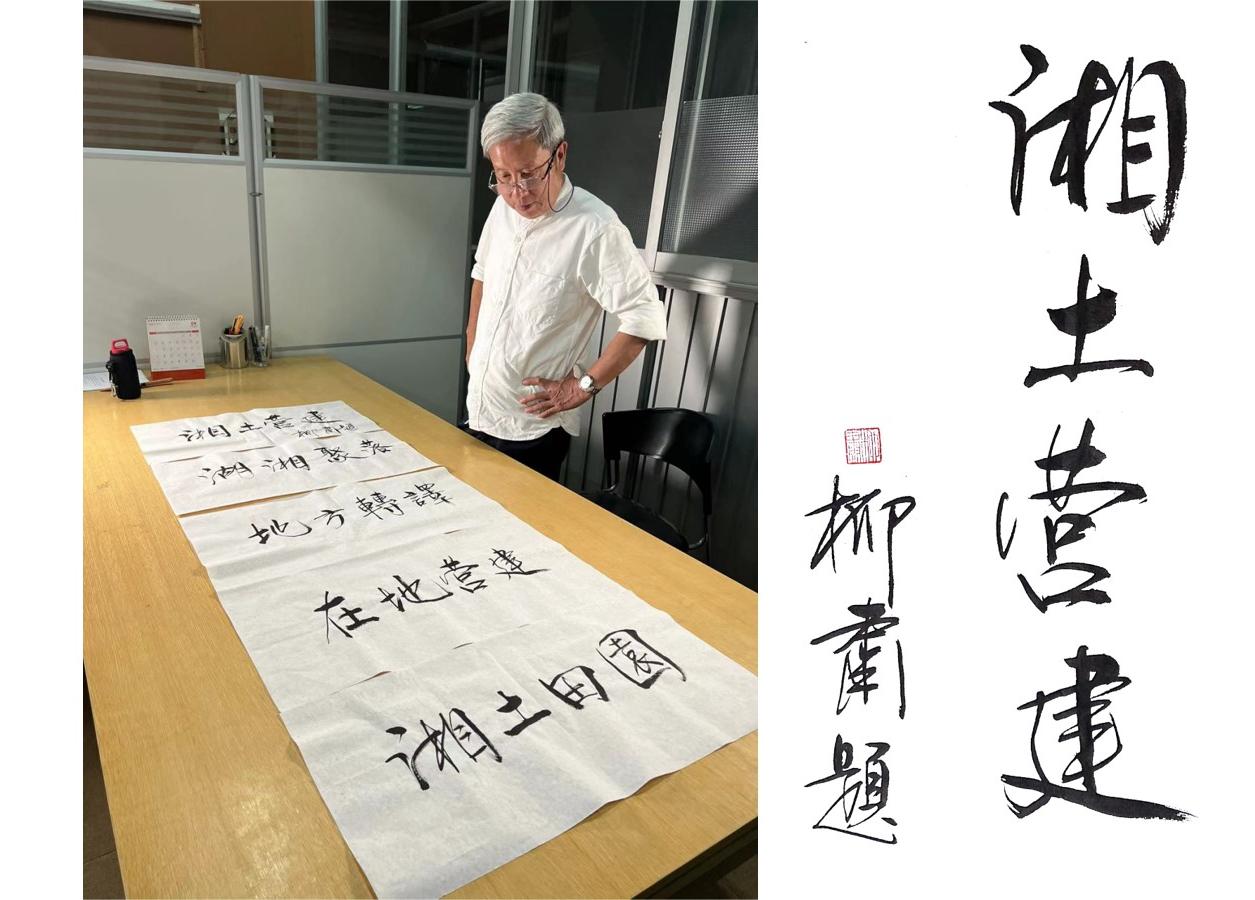 湘土营建
柳肅題
湖湘聚落
地方轉譯
在地营建
湘土田園
湘土营建
柳肅題